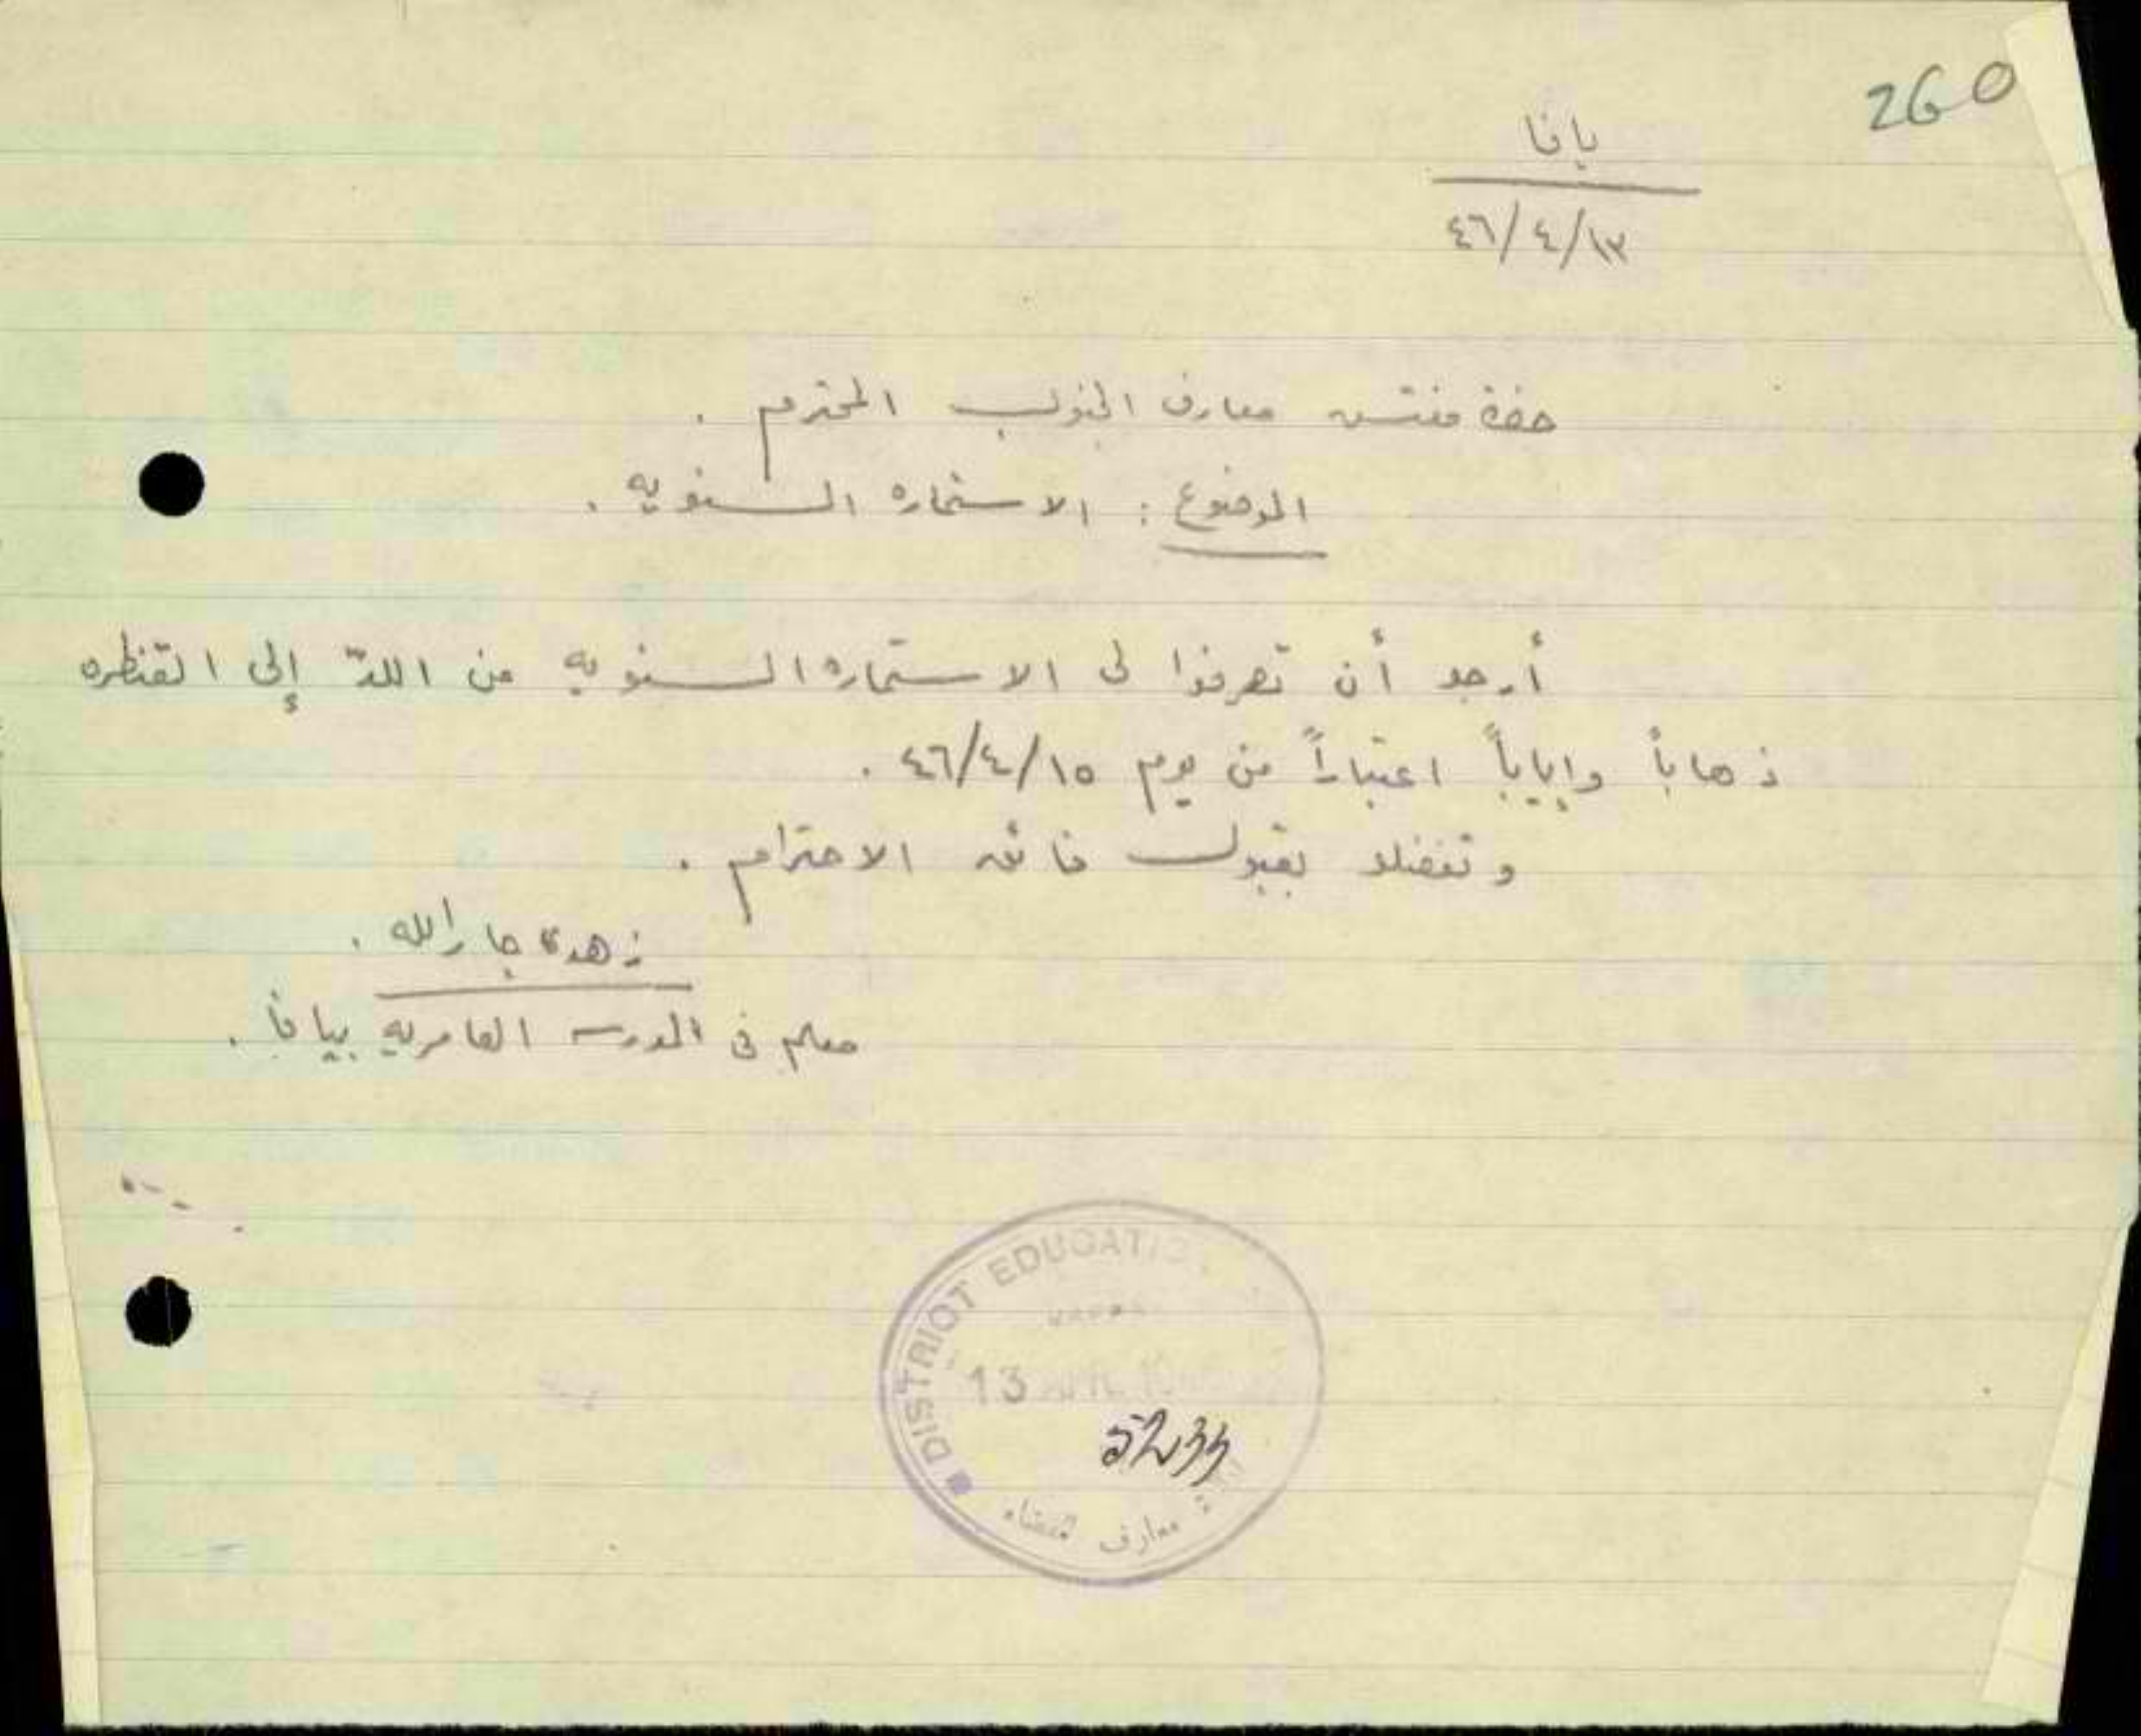 260
يافا
١٣/٤/٤٦
حضرة مفتش معارف الجنوب المحترم .
الموضوع : الاستماره السنويه .
أرجو أن تصرفوا لى الاستماره السنويه من اللدّ إلى القنطره
ذهاباً وإياباً اعتباراً من يوم ١٥/٤/٤٦ .
وتفضلو بقبول فائق الاحترام .
زهدى جارالله .
معلم فى المدرسه العامريه بيافا .
DISTRICT EDUCATIO
13
5233
معارف